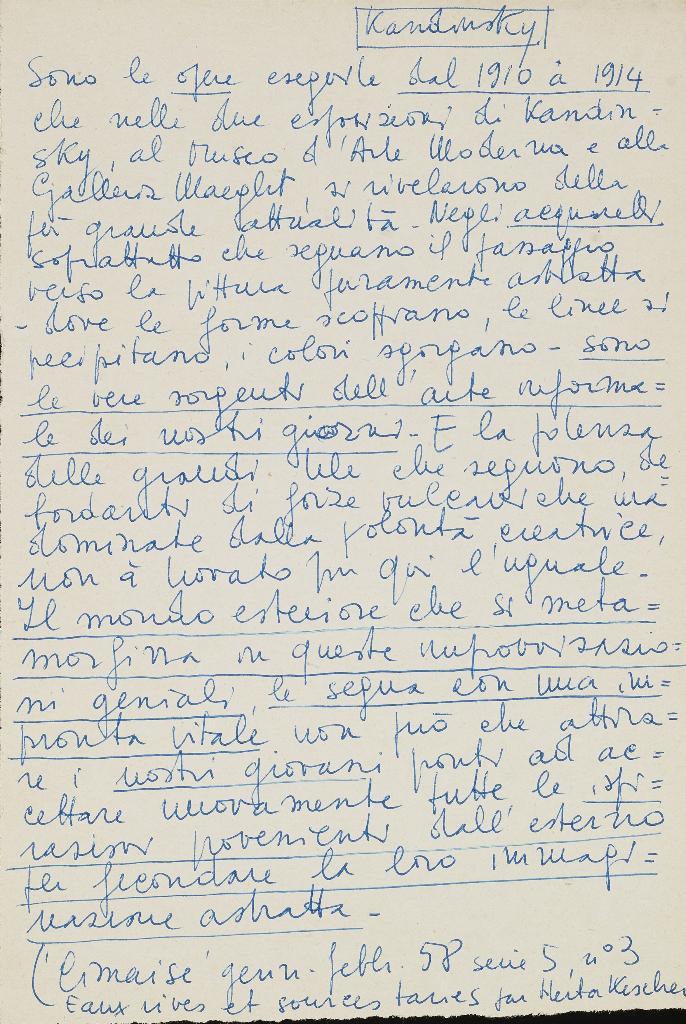 Kandinsky
Sono le opere eseguite dal 1910 à 1914
che nelle due esposizioni di Kandin-
sky, al Museo d'Arte Moderna e alla
Galleria Maeght, si rivelarono della
più grande attualità - Negli acquarelli
soprattutto che segnano il passaggio
verso la pittura puramente astratta
- dove le forme scoppiano, le linee si
precipitano, i colori sgorgano - sono
le vere sorgenti dell'arte informa=
le dei nostri giorni. E la potenza
delle grandi tele che seguono, de=
bordanti di forze vulcaniche ma
dominate dalla volontà creatrice,
non à trovato fin qui l'uguale.
Il mondo esteriore che si meta=
morfizza in queste improvvisazio=
ni geniali, le segna con una im=
pronta vitale non può che attira=
re i nostri giovani pronti ad ac=
cettare nuovamente tutte le ispi=
razioni provenienti dall'esterno
per fecondare la loro immagi=
nazione astratta -
('Cimaise' genn. febbr. 58 serie 5, n° 3
Eaux vives et sources taries par Herta Wescher